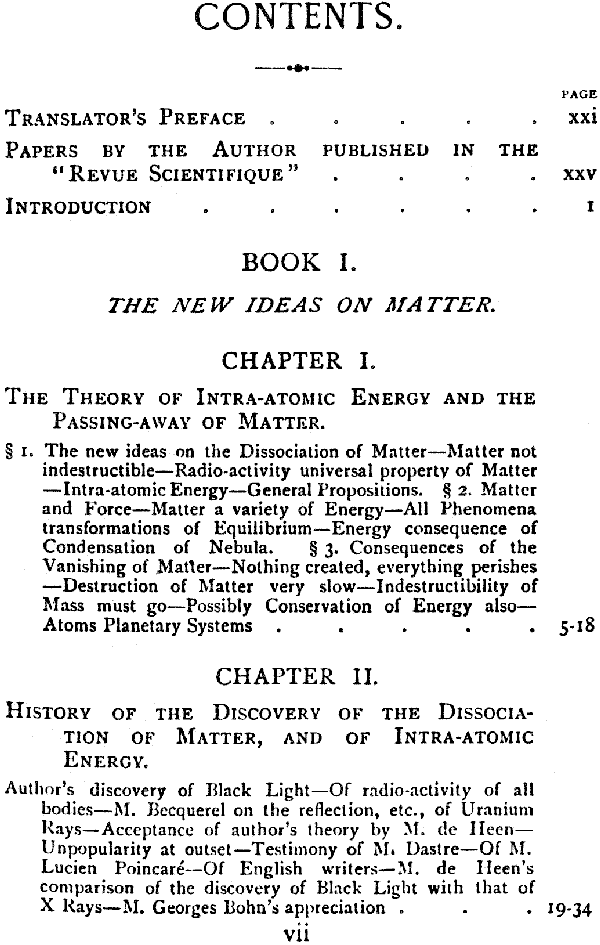 CONTENTS.
PAGE
TRANSLATOR'S PREFACE . . . . . xxi
PAPERS BY THE AUTHOR PUBLISHED IN THE
"REVUE SCIENTIFIQUE" . . . . xxv
INTRODUCTION . . . . . . 1
BOOK I.
THE NEW IDEAS ON MATTER.
CHAPTER I.
THE THEORY OF INTRA-ATOMIC ENERGY AND THE
PASSING-AWAY OF MATTER.
§ 1. The new ideas on the Dissociation of Matter—Matter not
indestructible—Radio-activity universal property of Matter
—Intra-atomic Energy—General Propositions. § 2. Matter
and Force—Matter a variety of Energy—All Phenomena
transformations of Equilibrium—Energy consequence of
Condensation of Nebula. § 3. Consequences of the
Vanishing of Matter—Nothing created, everything perishes
—Destruction of Matter very slow—Indestructibility of
Mass must go—Possibly Conservation of Energy also—
Atoms Planetary Systems . . . . . 5-18
CHAPTER II.
HISTORY OF THE DISCOVERY OF THE DISSOCIA-
TION OF MATTER, AND OF INTRA-ATOMIC
ENERGY.
Author's discovery of Black Light—Of radio-activity of all
bodies—M. Becquerel on the reflection, etc., of Uranium
Rays—Acceptance of author's theory by M. de Heen—
Unpopularity at outset—Testimony of M. Dastre—Of M.
Lucien Poincaré—Of English writers—M. de Heen's
comparison of the discovery of Black Light with that of
X Rays—M. Georges Bohn's appreciation . . . 19-34
vii